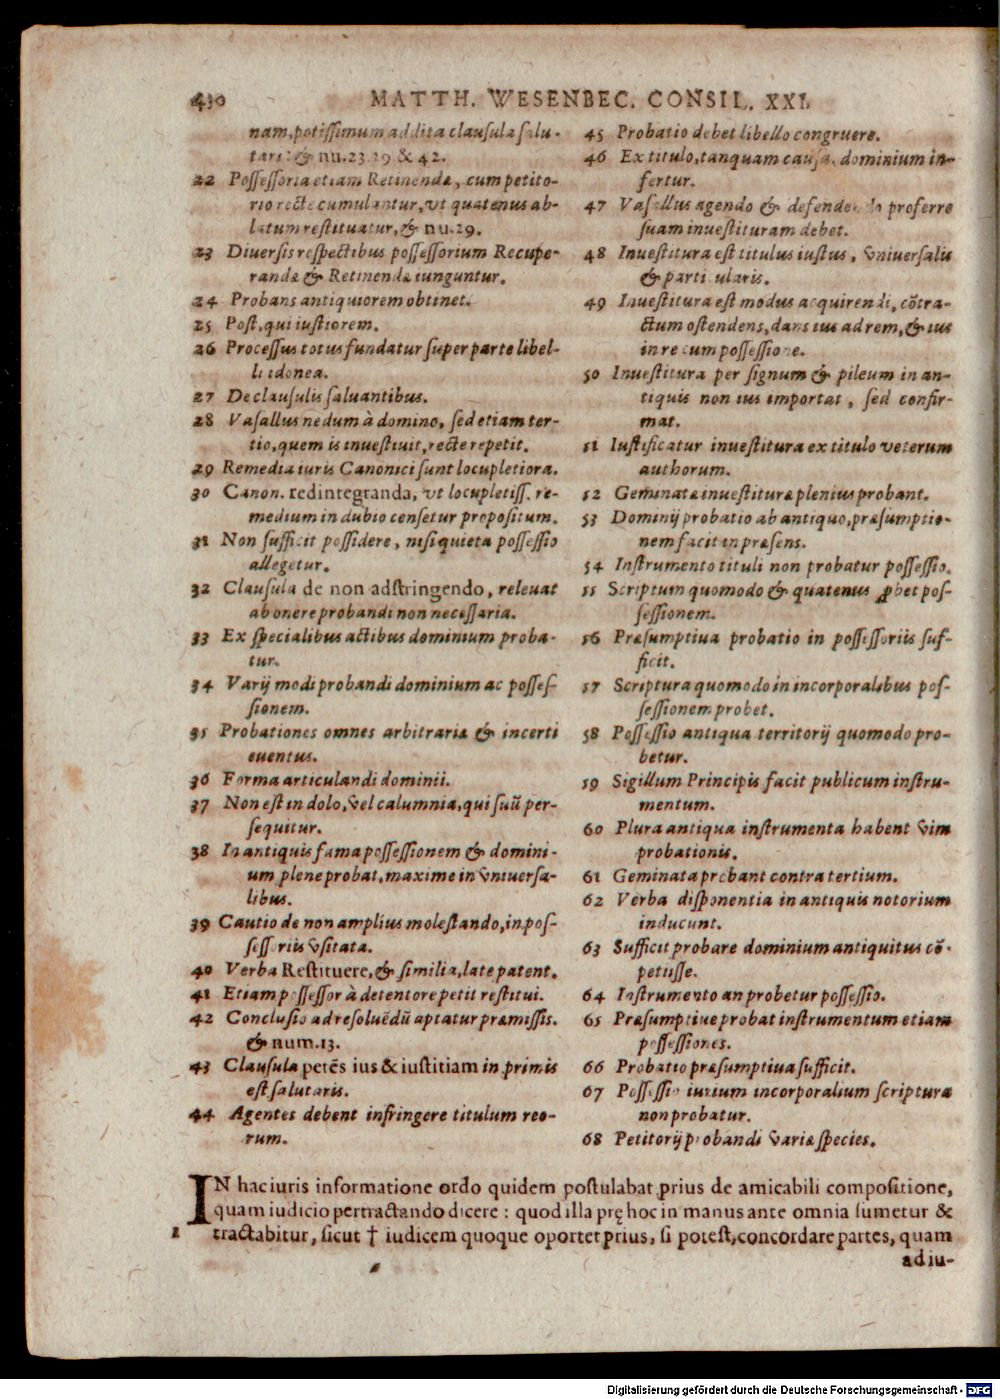 430 MATTH. WESENBEC. CONSIL. XXI.
nam, potissimum addita clausula salu-
tari: & nu. 23. 29 & 42.
22 Possessoria etiam Retinendæ, cum petito-
rio recte cumulantur, vt quatenus ab-
latum restituatur, & nu. 29.
23 Diuersis respectibus possessorium Recupe-
randæ & Retinendæ iunguntur.
24 Probans antiquiorem obtinet.
25 Post, qui iustiorem.
26 Processus totus fundatur super parte libel-
li idonea.
27 De clausulis saluantibus.
28 Vasallus nedum à domino, sed etiam ter-
tio, quem is inuestiuit, recte repetit.
29 Remedia iuris Canonici sunt locupletiora.
30 Canon. redintegranda, vt locupletiss. re-
medium in dubio censetur propositum.
31 Non sufficit possidere, nisi quieta possessio
allegetur.
32 Clausula de non adstringendo, releuat
ab onere probandi non necessaria.
33 Ex specialibus actibus dominium proba-
tur.
34 Varij modi probandi dominium ac posses-
sionem.
35 Probationes omnes arbitrariæ & incerti
euentus.
36 Forma articulandi dominii.
37 Non est in dolo, vel calumnia, qui suū per-
sequitur.
38 In antiquis fama possessionem & domini-
um plene probat, maxime in vniuersa-
libus.
39 Cautio de non amplius molestando, in pos-
sessoriis vsitata.
40 Verba Restituere, & similia, late patent.
41 Etiam possessor à detentore petit restitui.
42 Conclusio ad resoluēdū aptatur præmissis.
& num. 13.
43 Clausula petēs ius & iustitiam in primis
est salutaris.
44 Agentes debent infringere titulum reo-
rum.
45 Probatio debet libello congruere.
46 Ex titulo, tanquam causa, dominium in-
fertur.
47 Vasallus agendo & defendendo proferre
suam inuestituram debet.
48 Inuestitura est titulus iustus, vniuersalis
& particularis.
49 Inuestitura est modus acquirendi, cōtra-
ctum ostendens, dans ius ad rem, & ius
in re cum possessione.
50 Inuestitura per signum & pileum in an-
tiquis non ius importat, sed confir-
mat.
51 Iustificatur inuestitura ex titulo veterum
authorum.
52 Geminatæ inuestituræ plenius probant.
53 Dominij probatio ab antiquo, præsumptio-
nem facit in præsens.
54 Instrumento tituli non probatur possessio.
55 Scriptum quomodo & quatenus ꝓbet pos-
sessionem.
56 Præsumptiua probatio in possessoriis suf-
ficit.
57 Scriptura quomodo in incorporalibus pos-
sessionem probet.
58 Possessio antiqua territorij quomodo pro-
betur.
59 Sigillum Principis facit publicum instru-
mentum.
60 Plura antiqua instrumenta habent vim
probationis.
61 Geminata probant contra tertium.
62 Verba disponentia in antiquis notorium
inducunt.
63 Sufficit probare dominium antiquitus cō-
petiisse.
64 Instrumento an probetur possessio.
65 Præsumptiue probat instrumentum etiam
possessiones.
66 Probatio præsumptiua sufficit.
67 Possessio iurium incorporalium scriptura
non probatur.
68 Petitorij probandi variæ species.
IN hac iuris informatione ordo quidem postulabat prius de amicabili compositione,
quam iudicio pertractando dicere: quod illa prę hoc in manus ante omnia sumetur &
1 tractabitur, sicut † iudicem quoque oportet prius, si potest, concordare partes, quam
ad iu-
Digitalisierung gefördert durch die Deutsche Forschungsgemeinschaft - DFG